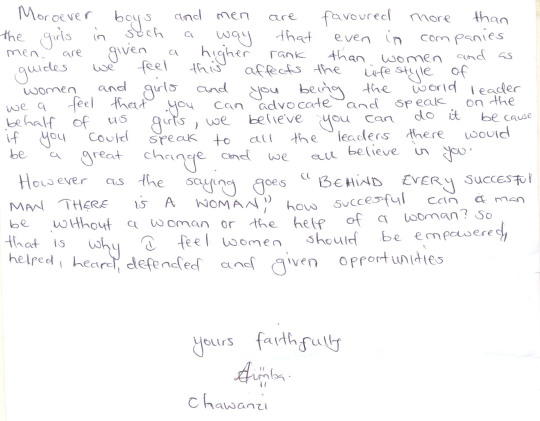 Moroever boys and men are favoured more than
the girls in such a way that even in companies
men are given a higher rank than women and as
guides we feel this affects the lifestyle of
women and girls and you being the world leader
we a feel that you can advocate and speak on the
behalf of us girls, we believe you can do it because
if you could speak to all the leaders there would
be a great change and we all believe in you.
However as the saying goes "BEHIND EVERY SUCCESFUL
MAN THERE IS A WOMAN," how succesful can a man
be without a woman or the help of a woman? so
that is why I feel women should be empowered,
helped, heard, defended and given opportunities
yours faithfully
Chawanzi